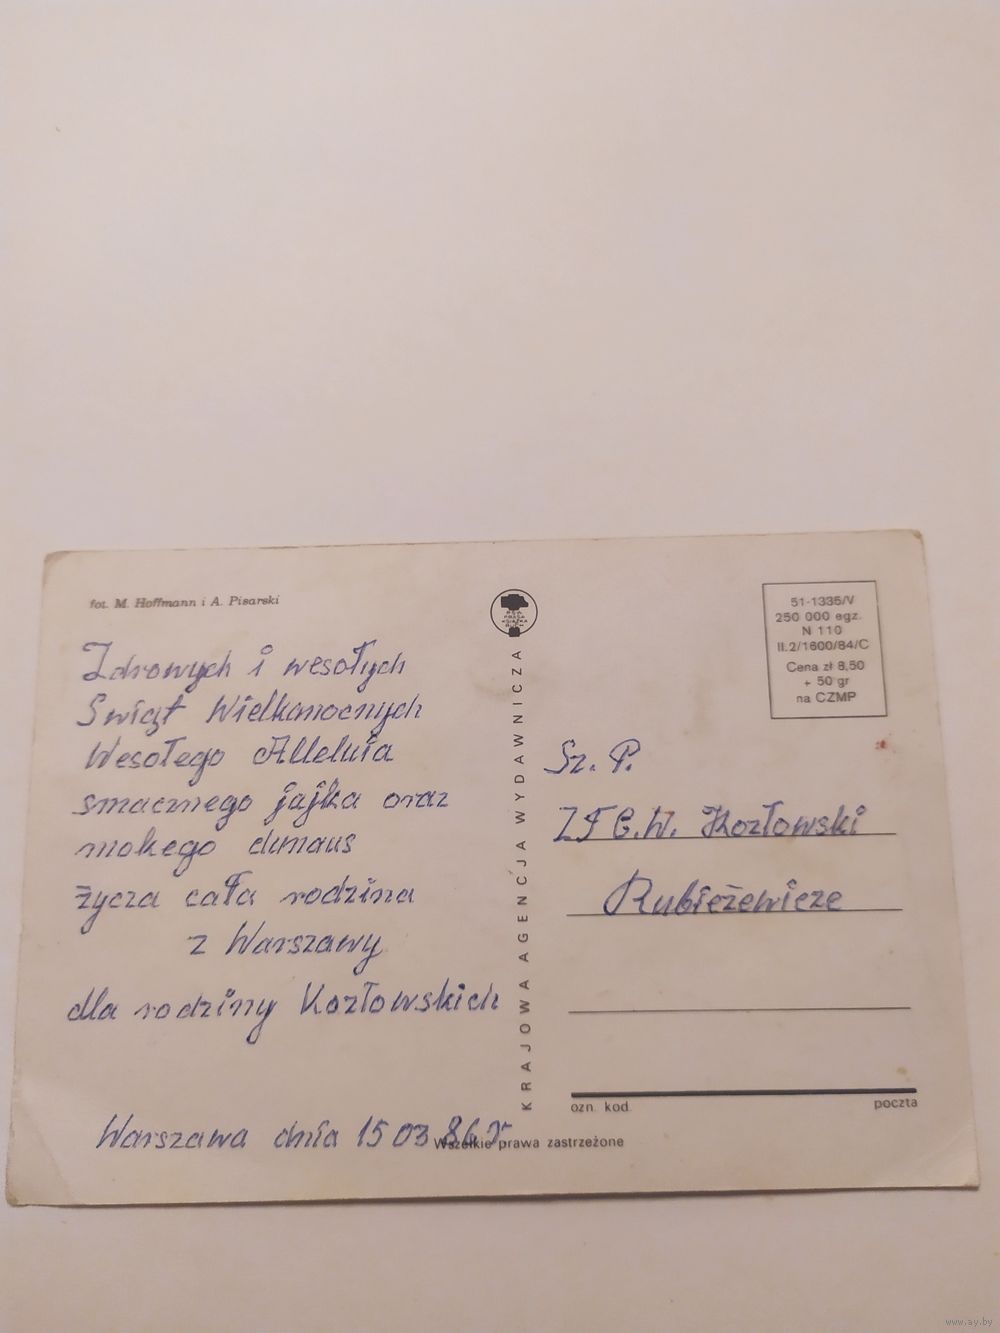 fot. M. Hoffmann i A. Pisarski
Zdrowych i wesołych
Swiąt Wielkanocnych
Wesołego Alleluia
smacznego jajka oraz
mokego dumaus
życza cała rodzina
z Warszawy
dla rodziny Kozłowskich
Warszawa dnia 15 03 86 r.
KRAJOWA AGENCJA WYDAWNICZA
RSW
PRASA
KSIĄŻKA
RUCH
Wszelkie prawa zastrzeżone
51-1335/V
250 000 egz.
N 110
II.2/1600/84/C
Cena zł 8,50
+ 50 gr
na CZMP
Sz. P.
W. Kozłowski
Rubieżewicze
ozn. kod.
poczta
www.ay.by